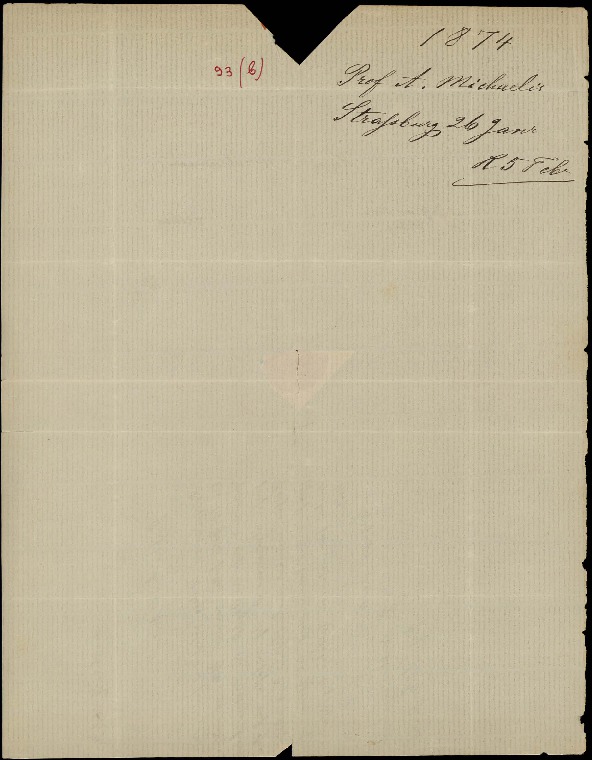 1874
93 (6)
Prof A. Michaelis
Straßburg 26 Janr
R 5 Febr